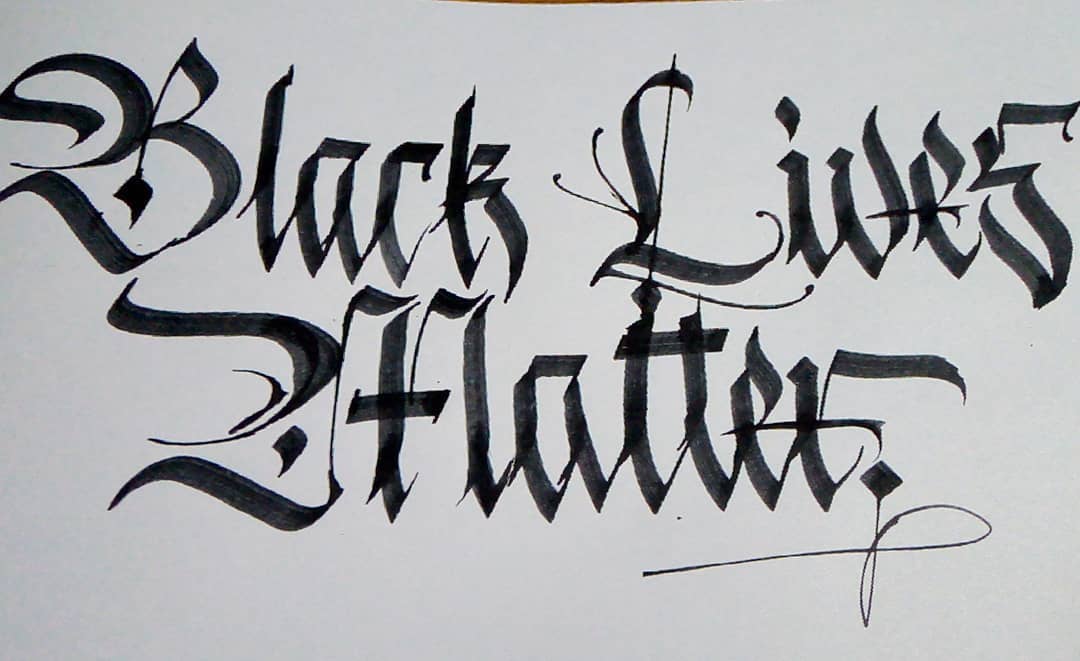 Black Lives
Matter.